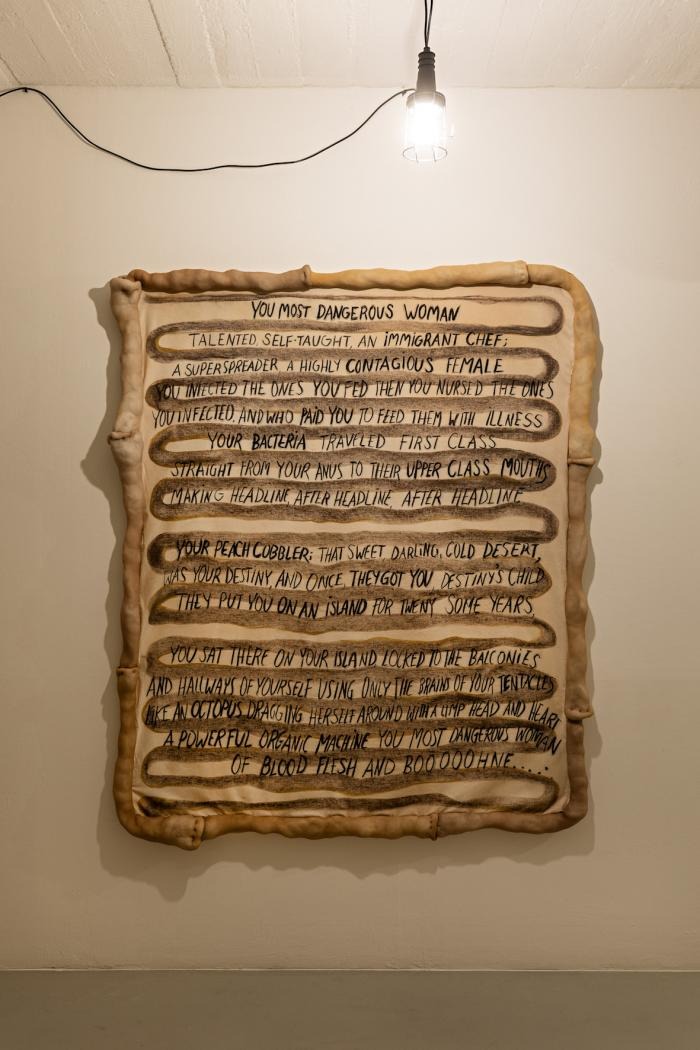 YOU MOST DANGEROUS WOMAN
TALENTED, SELF-TAUGHT, AN iMMIGRANT CHEF;
A SUPERSPREADER A HIGHLY CONTAGIOUS FEMALE
YOU INFECTED THE ONES YOU FED THEN YOU NURSED THE ONES
YOU INFECTED, AND WHO PAID YOU TO FEED THEM WITH ILLNESS
YOUR BACTERIA TRAVELED FIRST CLASS
STRAIGHT FROM YOUR ANUS TO THEIR UPPER CLASS MOUTHS
MAKING HEADLINE, AFTER HEADLINE, AFTER HEADLINE
YOUR PEACH COBBLER; THAT SWEET DARLING, COLD DESERT,
WAS YOUR DESTINY, AND ONCE, THEY GOT YOU DESTINY'S CHILD
THEY PUT YOU ON AN ISLAND FOR TWENY SOME YEARS,
YOU SAT THERE ON YOUR ISLAND LOCKED TO THE BALCONIES
AND HALLWAYS OF YOURSELF USING ONLY THE BRAINS OF YOUR TENTACLES
LIKE AN OCTOPUS DRAGGING HERSELF AROUND WITH A LIMP HEAD AND HEART
A POWERFUL ORGANIC MACHINE YOU MOST DANGEROUS WOMAN
OF BLOOD FLESH AND BOOOOOHNE.....